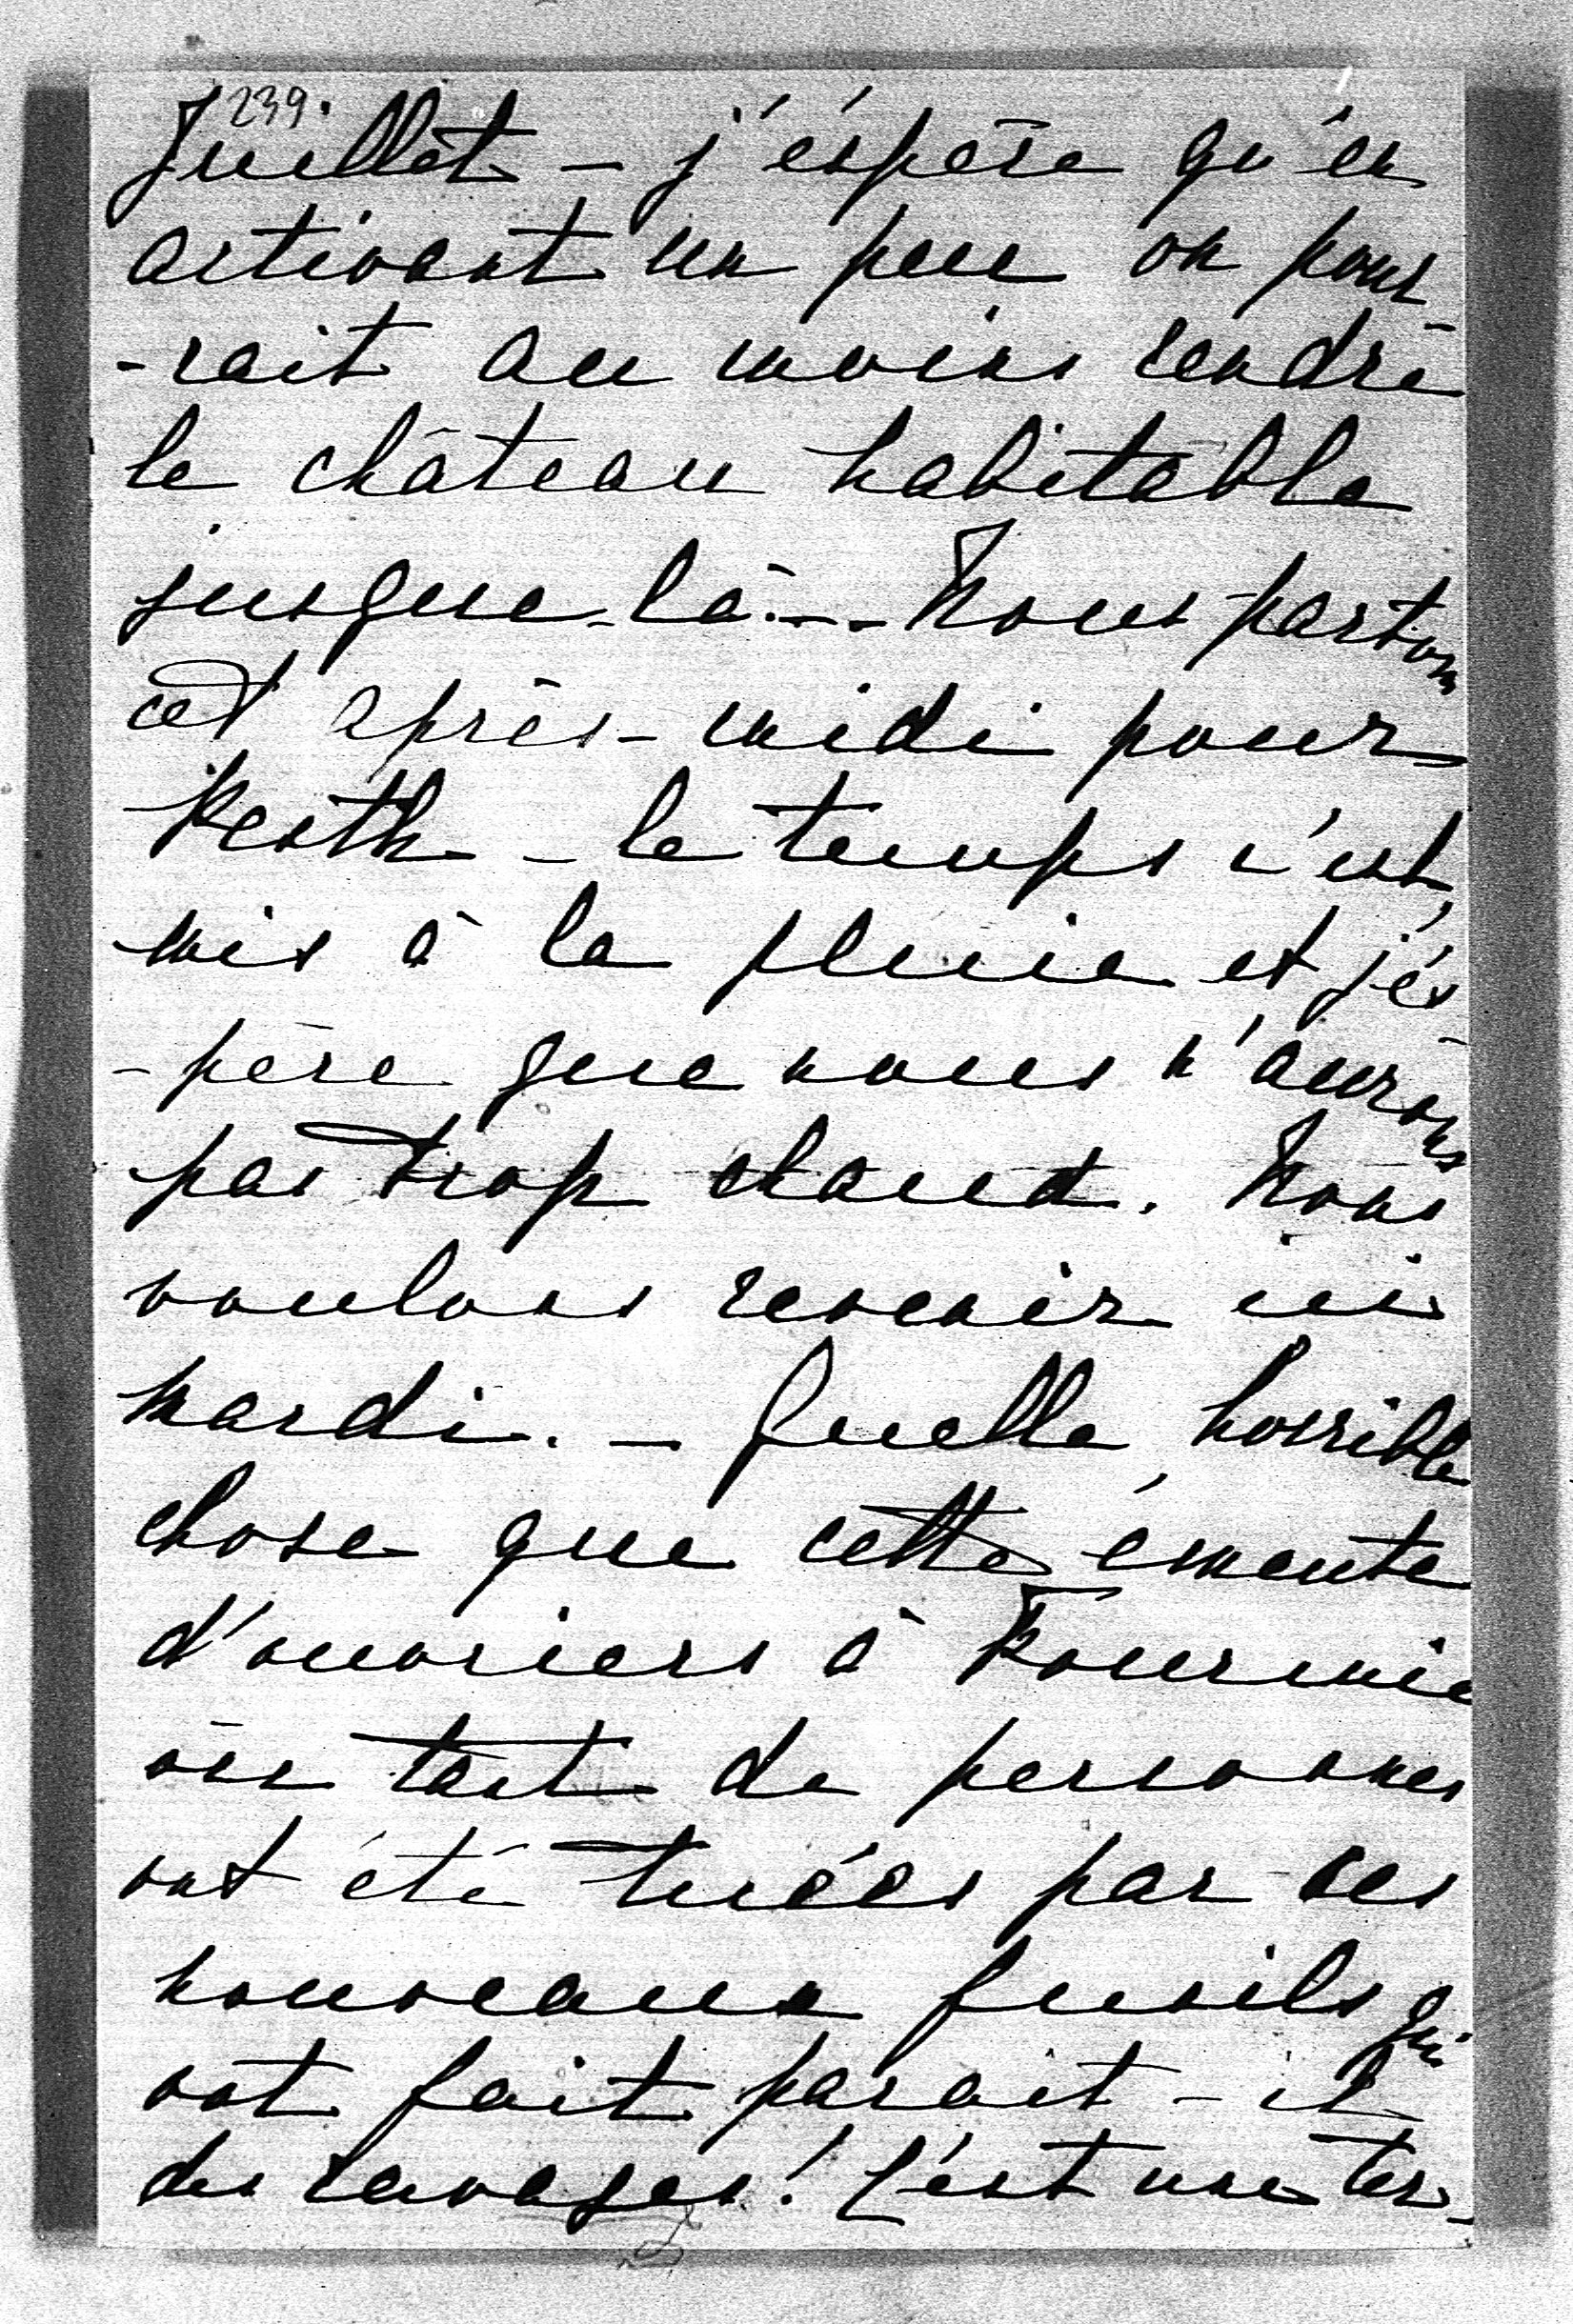 239.
Juillet – j'éspère qu'en
activant un peu on pour
-rait au moins rendre
le château habitable
jusque-là. – Nous partons
cet après-midi pour
Pesth – le temps s'est
mis à la pluie et j'és
-père que nous n'aurons
pas trop chaud. Nous
voulons revenir ici
mardi. – Quelle horrible
chose que cette émeute
d'ouvriers à Fourmie
où tant de personnes
ont été tuées par ces
nouveaux fusils qui
ont fait parait-il
des ravages! C'est une ter-